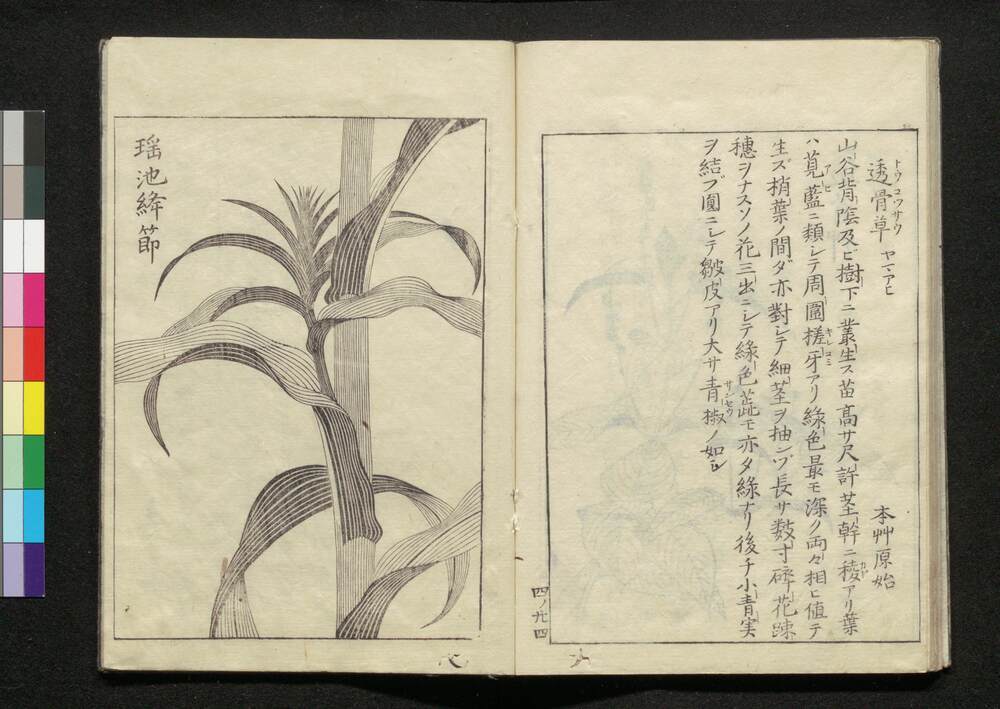 透骨草 トウコツサウ ヤマアヒ 本艸原始
山谷背陰及ビ樹下ニ叢生ス苗高サ尺許茎幹ニ稜アリ葉
ハ莧藍ニ類シテ周圍槎牙アリ緑色最モ深ノ両々相ヒ値テ
生ズ梢葉ノ間ダ亦對シテ細茎ヲ抽ンヅ長サ数寸碎花踈
穗ヲナスソノ花三出ニシテ緑色蕋モ亦タ緑ナリ後チ小青実
ヲ結ブ圓ニシテ皺皮アリ大サ青椒ノ如シ
四ノ九四
瑶池絳節